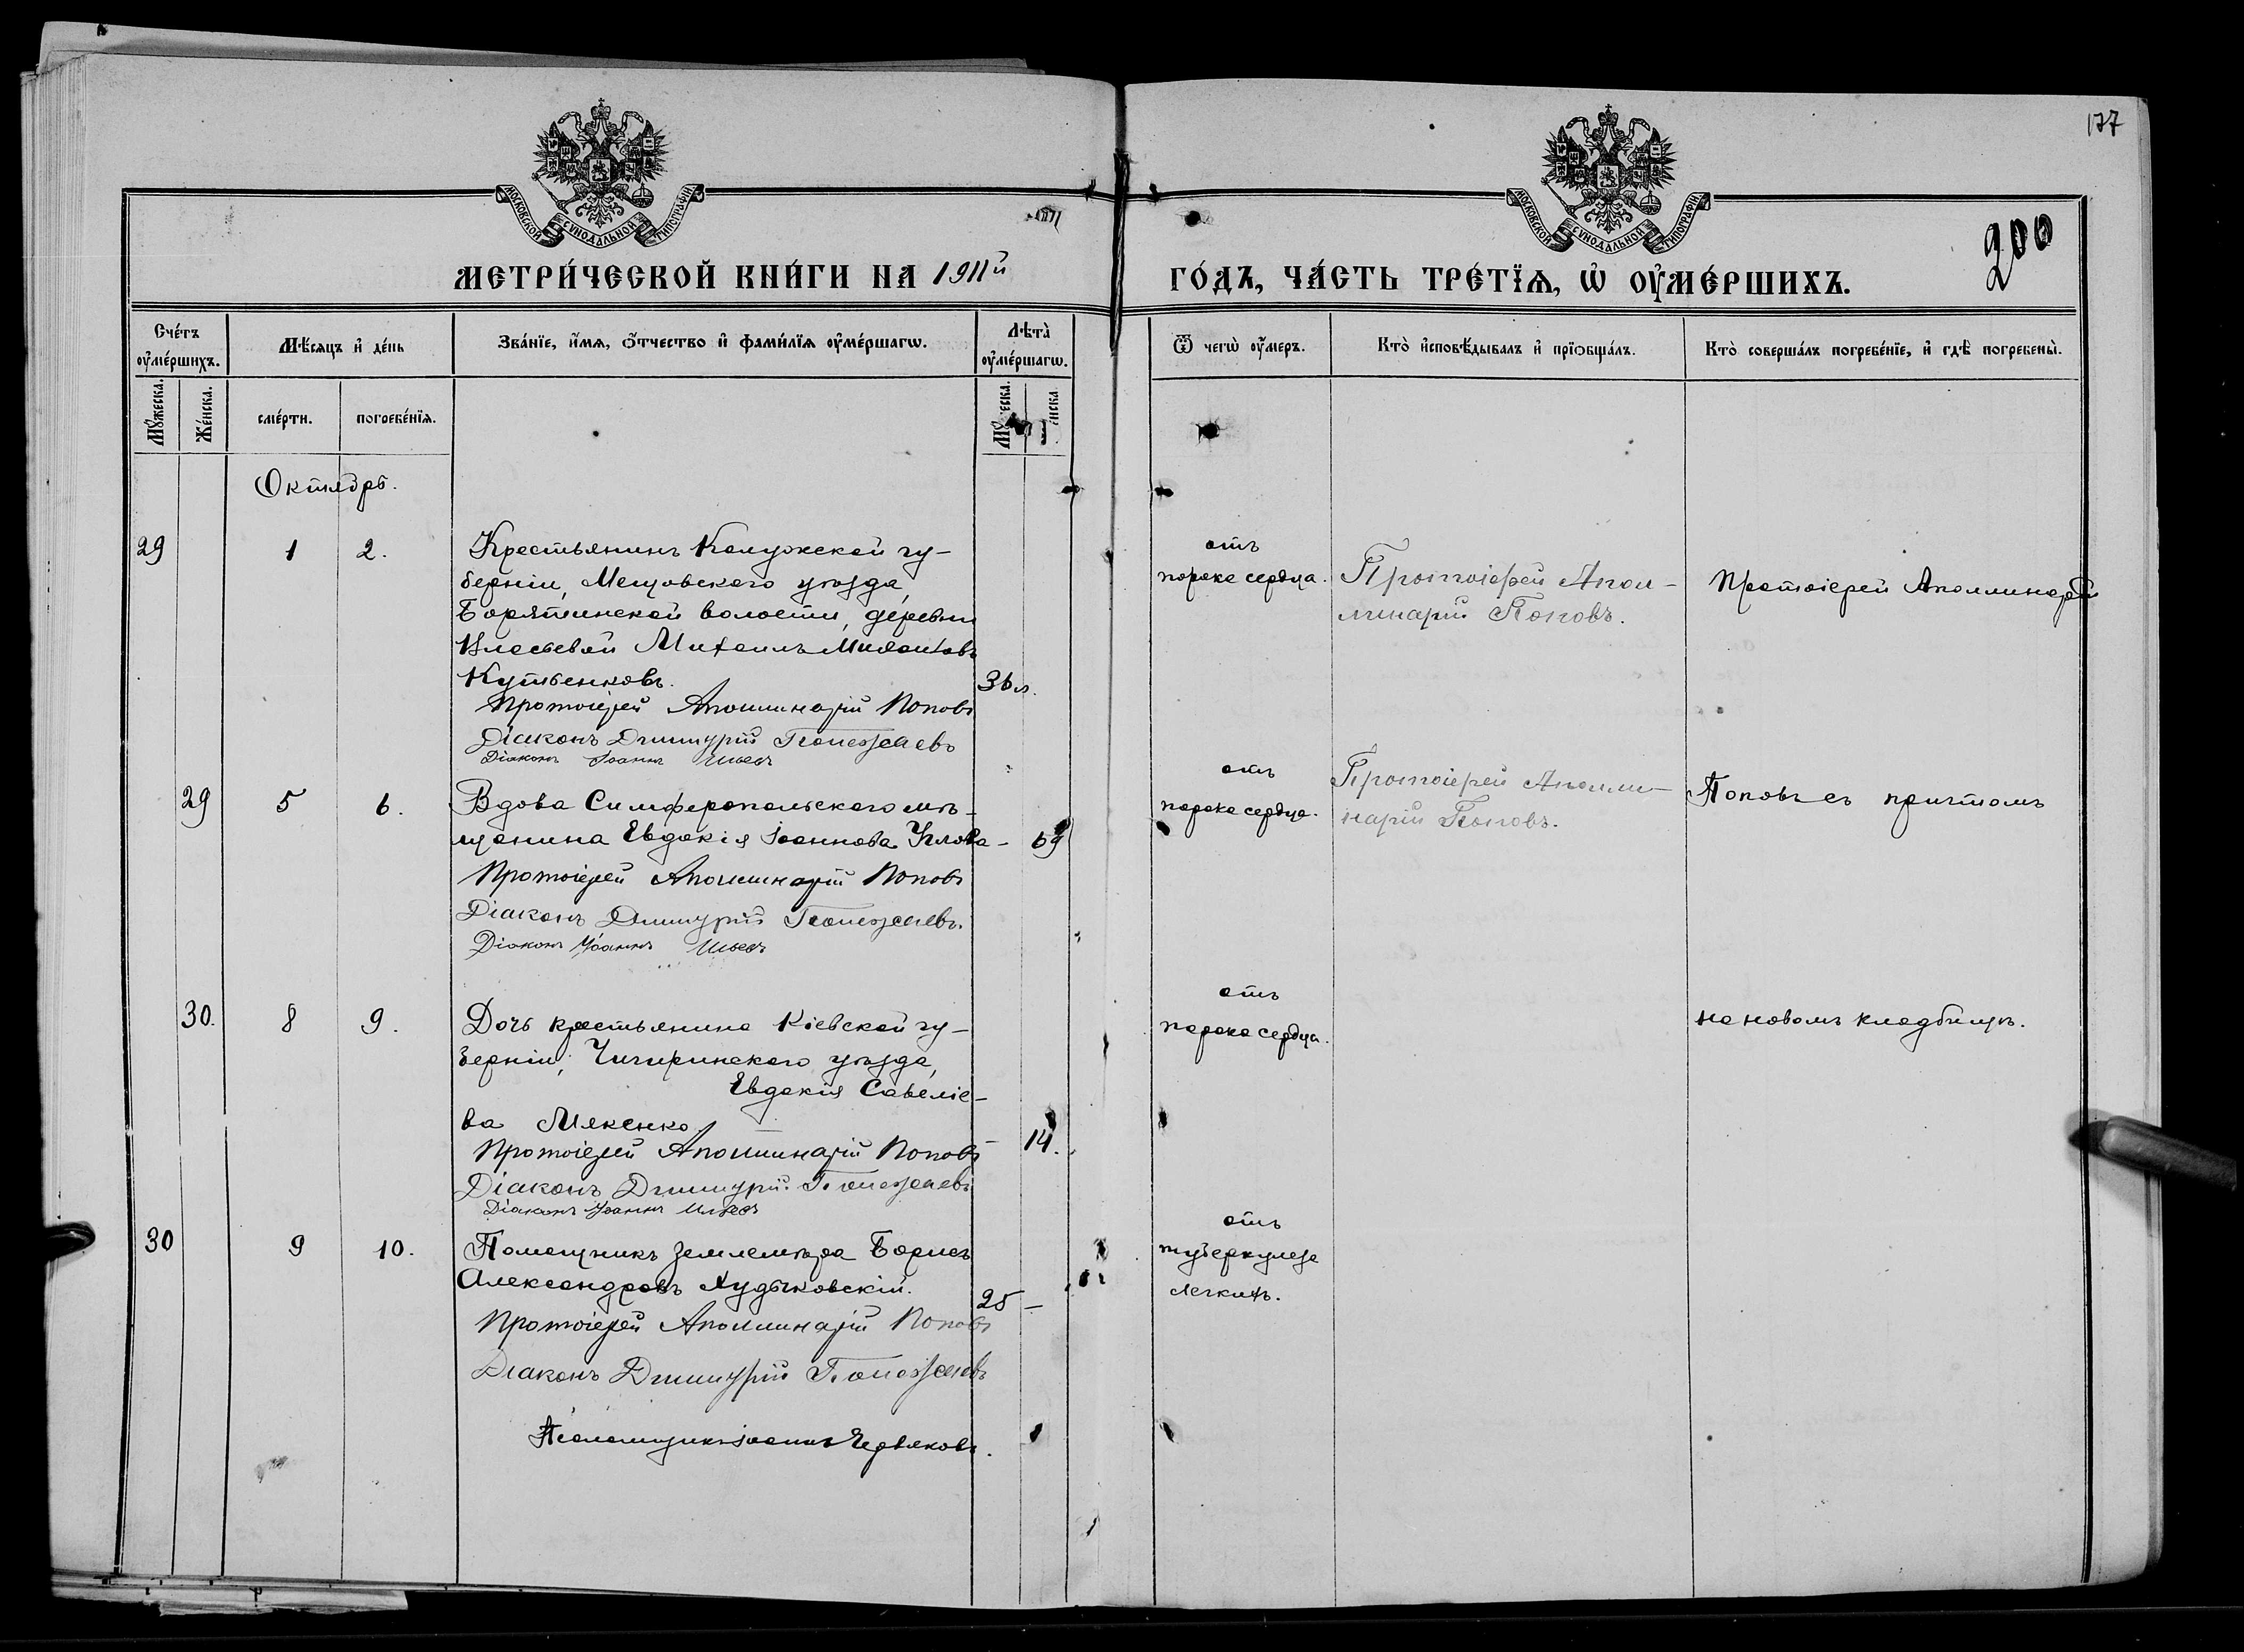 177
МОСКОВСКОЙ СѴНОДАЛЬНОЙ ТИПОГРАФІИ
МОСКОВСКОЙ СѴНОДАЛЬНОЙ ТИПОГРАФІИ
200
МЕТРИ́ЧЕСКОЙ КНИ́ГИ НА 1911й ГО́ДЪ, ЧА́СТЬ ТРЕ́ТЇѦ, Ѡ҆ ОУ҆МЕ́РШИХЪ.
Сче́тъ оу҆ме́ршихъ.
Мѣ́сяцъ и҆ де́нь
Зва́нїе, и҆́мя, ѻ҆́тчество и҆ фами́лїя оу҆ме́ршагѡ.
Лѣта̀ оу҆ме́ршагѡ.
Ѿ чегѡ̀ оу҆́меръ.
Кто̀ и҆сповѣ́дывалъ и҆ прїѻбща́лъ.
Кто̀ соверша́лъ погребе́нїе, и҆ гдѣ̀ погребены̀.
Му́жеска.
Же́нска.
сме́рти.
погребе́нїѧ.
Октябрь.
29 1 2.
Крестьянинъ Калужской гу-
берніи, Мещовскаго уѣзда,
Борятинской волости, деревни
Михаилъ
Кутьенковъ. 36 л.
Протоіерей Аполлинарій Поповъ
Діаконъ Димитрій
Діаконъ Іоаннъ
отъ
порока сердца.
Протоіерей Апол-
линарій Поповъ.
Протоіерей Аполлинарій
29 5 6.
Вдова Симферопольскаго мѣ-
щанина Евдокія Іоаннова - 69
Протоіерей Аполлинарій Поповъ
Діаконъ Димитрій
Діаконъ Іоаннъ
отъ
порока сердца.
Протоіерей Аполли-
нарій Поповъ.
Поповъ съ причтомъ
30. 8 9.
Дочь крестьянина Кіевской гу-
берніи, Чигиринскаго уѣзда,
Евдокія Савеліе-
ва Мякенко - 14.
Протоіерей Аполлинарій Поповъ
Діаконъ Димитрій
Діаконъ Іоаннъ
отъ
порока сердца.
на новомъ кладбищѣ.
30 9 10.
Помощникъ землемѣра Борисъ
Александровъ Худычковскій. 25 -
Протоіерей Аполлинарій Поповъ
Діаконъ Димитрій
Псаломщикъ Іоаннъ Червяковъ.
отъ
туберкулеза
легкихъ.